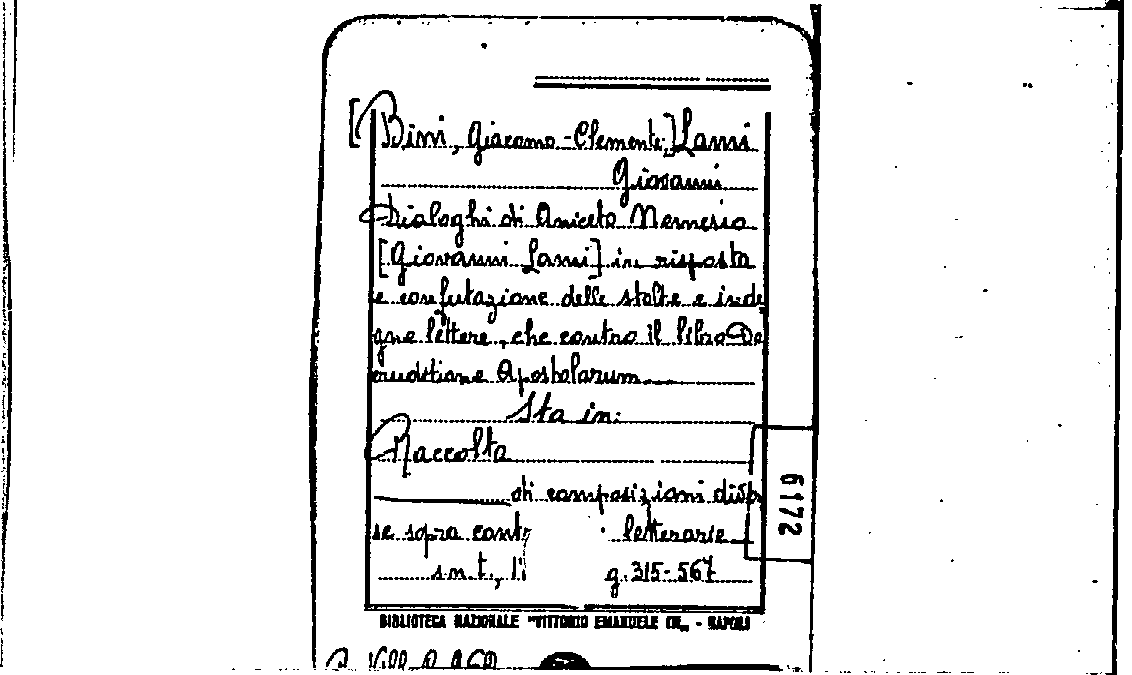 [Bini, Giacomo-Clemente,] Lami
Giovanni
Dialoghi di Aniceto Nemesio
[Giovanni Lami] in risposta
e confutazione delle stolte e inde
gne lettere, che contro il libro De
eruditione Apostolorum
Sta in:
Raccolta
di composizioni diver
se sopra letterarie
s.n.t., g. 315-567
6172
BIBLIOTECA NAZIONALE "VITTORIO EMANUELE III" - NAPOLI